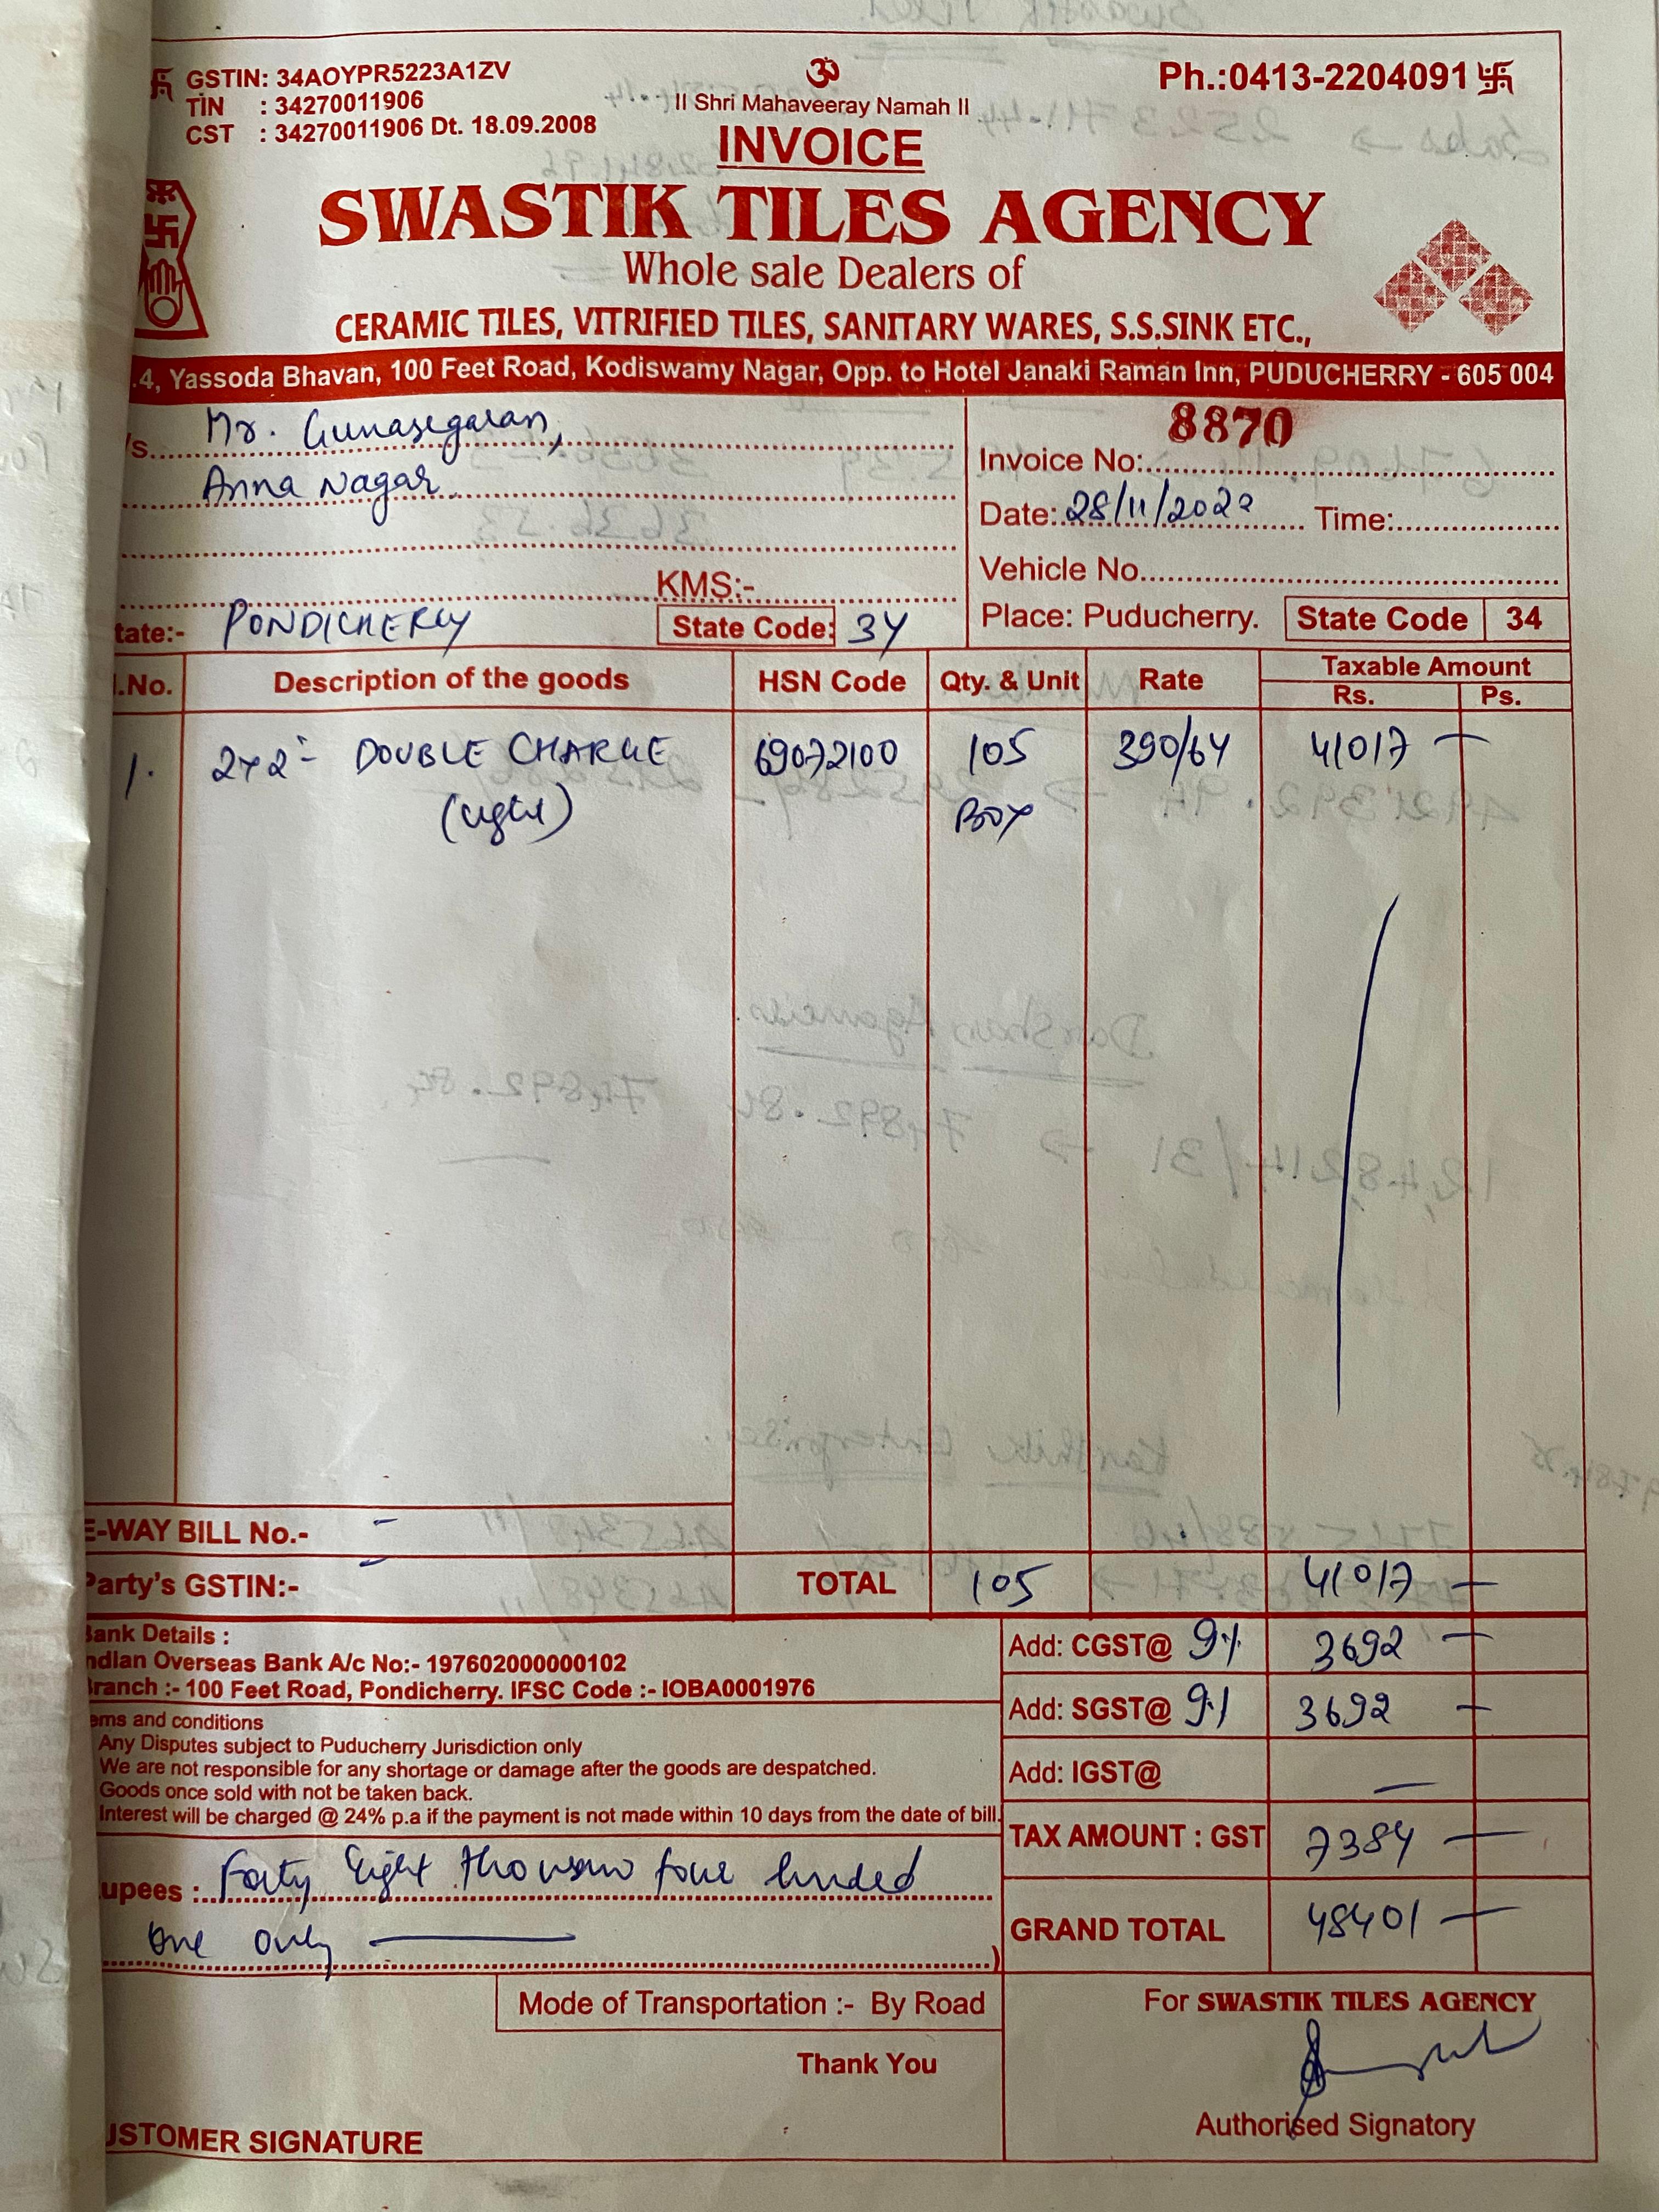 GSTIN: 34AOYPR5223A1ZV
TIN : 34270011906
CST : 34270011906 Dt. 18.09.2008
ॐ
II Shri Mahaveeray Namah II
Ph.:0413-2204091
INVOICE
SWASTIK TILES AGENCY
Whole sale Dealers of
CERAMIC TILES, VITRIFIED TILES, SANITARY WARES, S.S.SINK ETC.,
.4, Yassoda Bhavan, 100 Feet Road, Kodiswamy Nagar, Opp. to Hotel Janaki Raman Inn, PUDUCHERRY - 605 004
/s. Mr. Gunasegaran,
Anna Nagar.
KMS:-
tate:- PONDICHERRY State Code: 34
8870
Invoice No:
Date: 28/11/2022 Time:
Vehicle No.
Place: Puducherry. State Code 34
.No. Description of the goods HSN Code Qty. & Unit Rate Taxable Amount
Rs. Ps.
1. 2x2 - DOUBLE CHARGE 69072100 105 390/64 41017 —
(light) Box
E-WAY BILL No.- -
Party's GSTIN:- - TOTAL 105 41017 —
Bank Details :
Indian Overseas Bank A/c No:- 197602000000102
Branch :- 100 Feet Road, Pondicherry. IFSC Code :- IOBA0001976
ems and conditions
Any Disputes subject to Puducherry Jurisdiction only
We are not responsible for any shortage or damage after the goods are despatched.
Goods once sold with not be taken back.
Interest will be charged @ 24% p.a if the payment is not made within 10 days from the date of bill.
Add: CGST@ 9% 3692 —
Add: SGST@ 9% 3692 —
Add: IGST@ —
TAX AMOUNT : GST 7384 —
GRAND TOTAL 48401 —
upees : Forty Eight thousand four hundred
One only —
)
Mode of Transportation :- By Road
Thank You
USTOMER SIGNATURE
For SWASTIK TILES AGENCY
Authorised Signatory